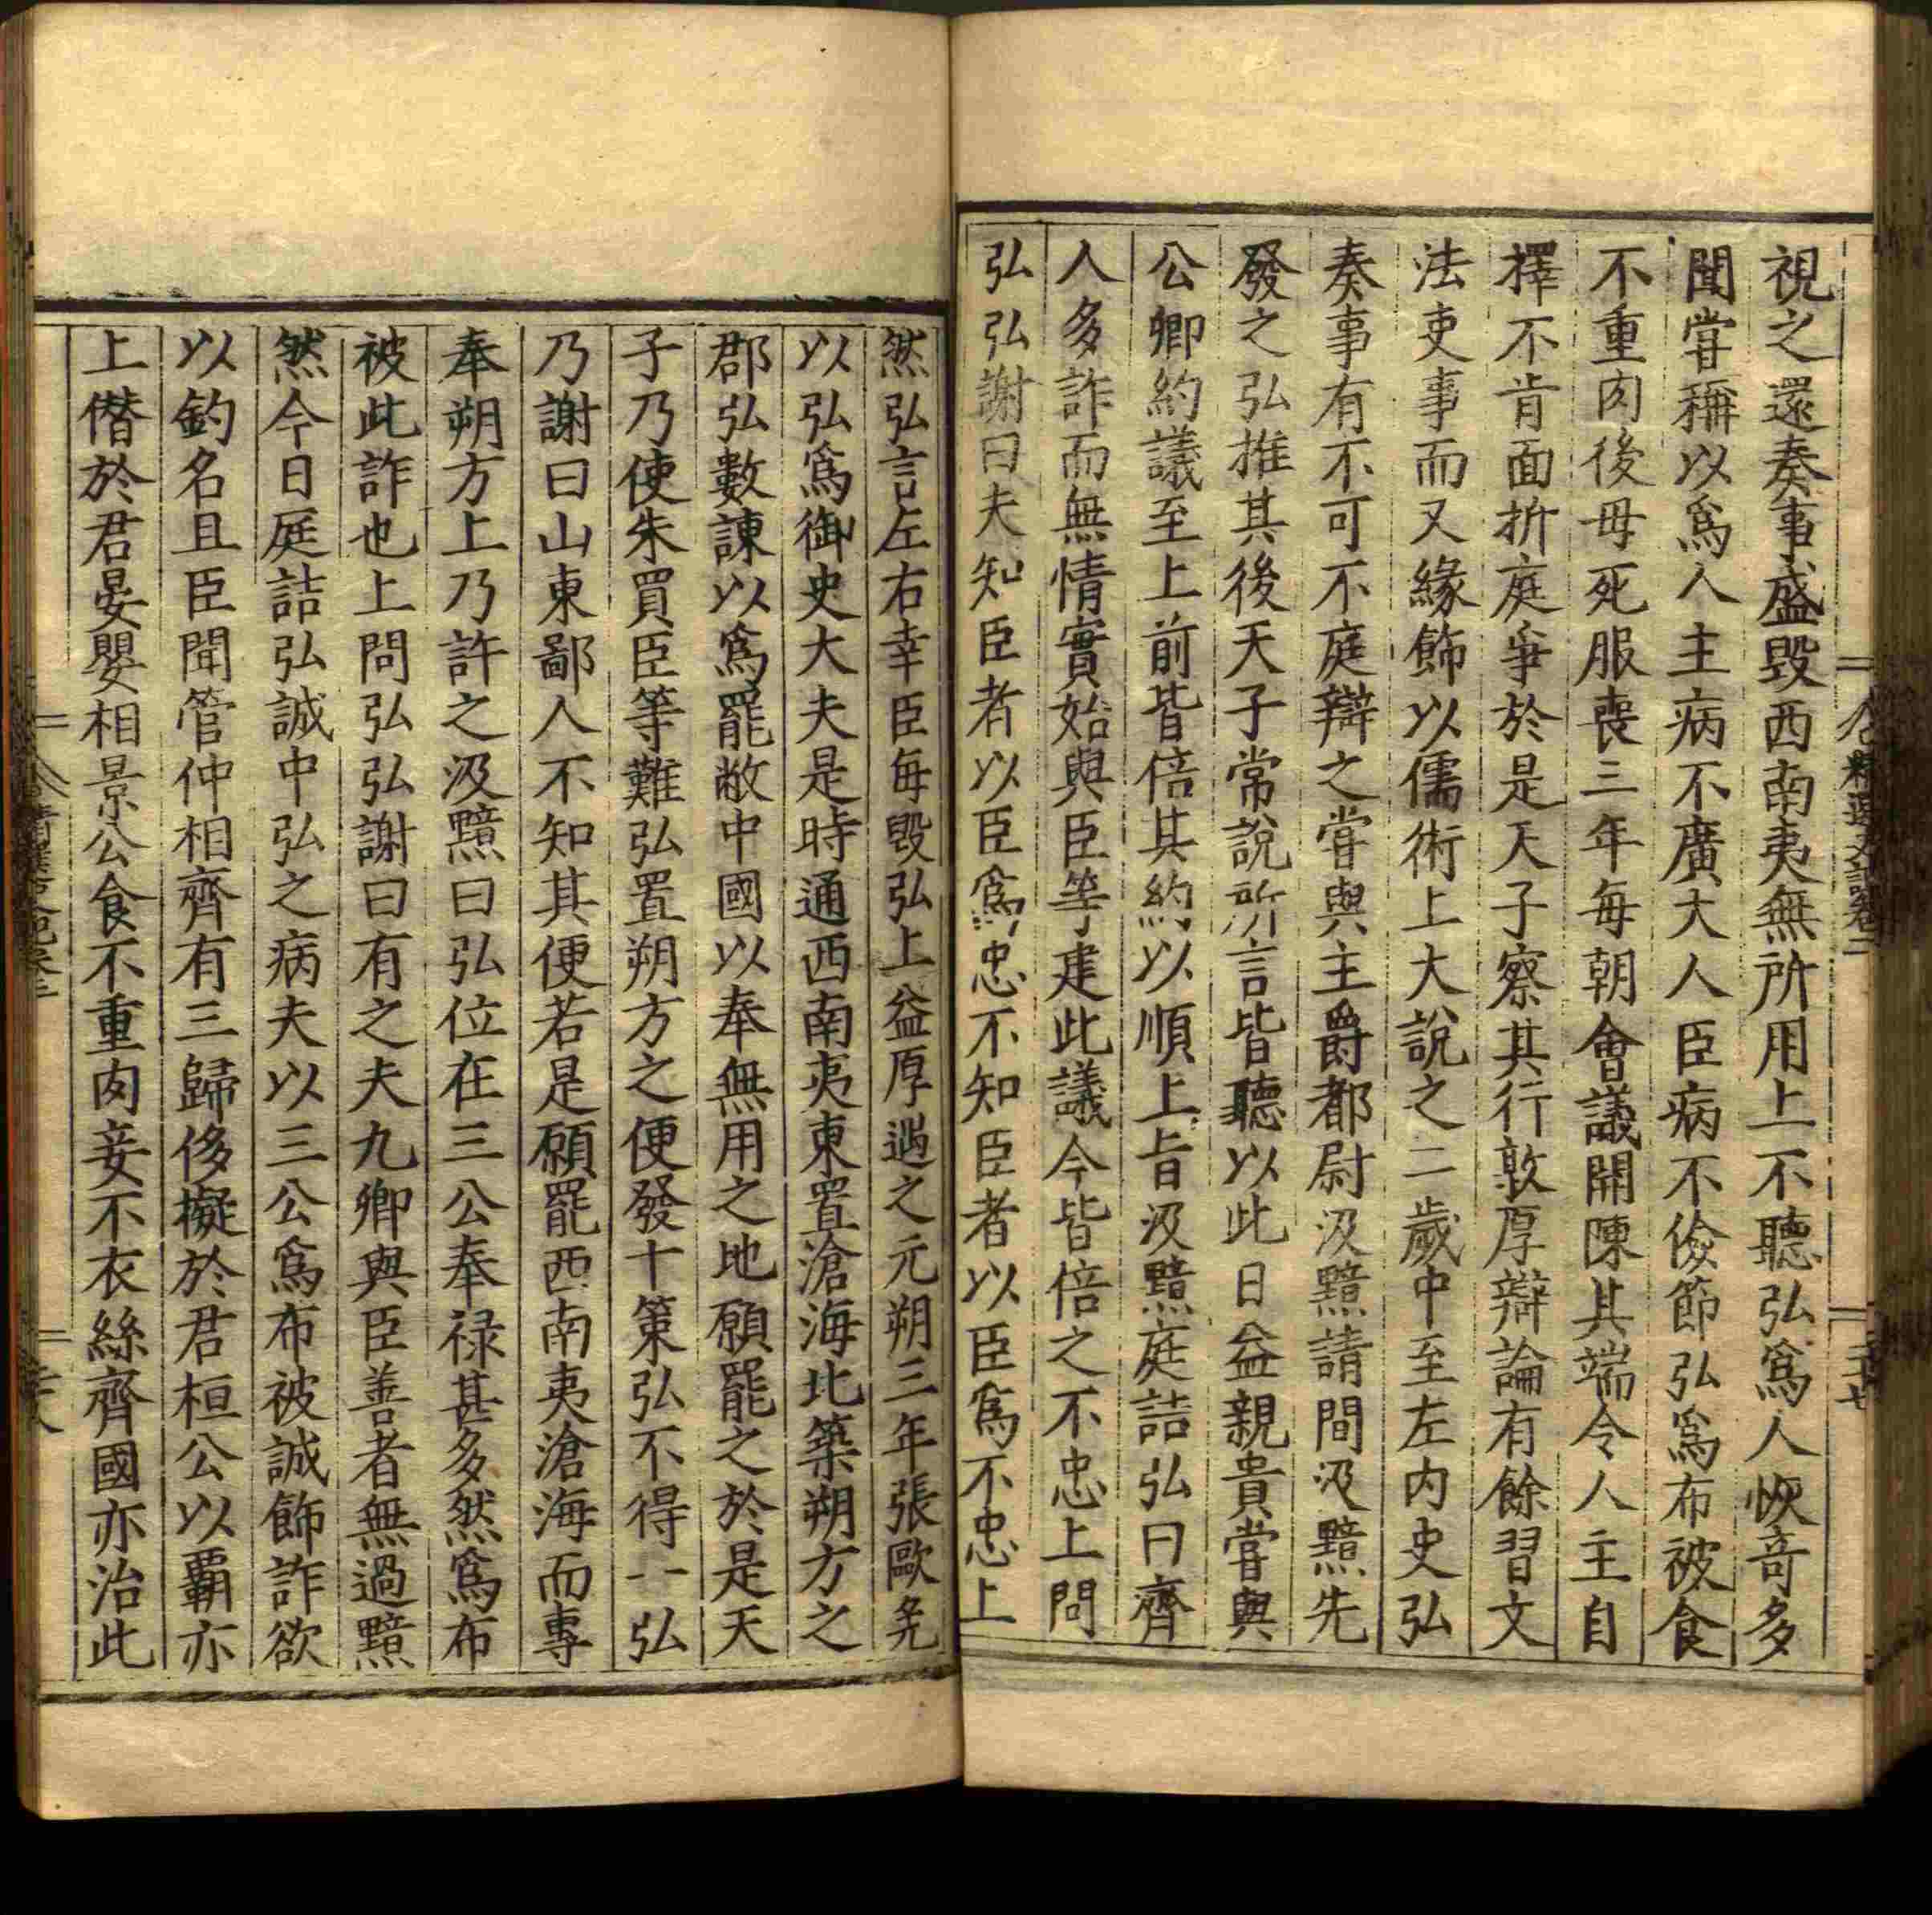 視之還奏事盛毀西南夷無所用上不聽弘爲人恢奇多
聞甞稱以爲人主病不廣大人臣病不儉節弘爲布被食
不重肉後母死服喪三年每朝會議開陳其端令人主自
擇不肯面折庭爭於是天子察其行敦厚辯論有餘習文
法吏事而又緣飾以儒術上大說之二歲中至左内史弘
奏事有不可不庭辯之甞與主爵都尉汲黯請間汲黯先
發之弘推其後天子常說所言皆聽以此日益親貴甞與
公卿約議至上前皆倍其約以順上旨汲黯庭詰弘曰齊
人多詐而無情實始與臣等建此議今皆倍之不忠上問
弘弘謝曰夫知臣者以臣爲忠不知臣者以臣爲不忠上
然弘言左右幸臣每毀弘上益厚遇之元朔三年張歐免
以弘爲御史大夫是時通西南夷東置滄海北築朔方之
郡弘數諫以爲罷敝中國以奉無用之地願罷之於是天
子乃使朱買臣等難弘置朔方之便發十策弘不得一弘
乃謝曰山東鄙人不知其便若是願罷西南夷滄海而專
奉朔方上乃許之汲黯曰弘位在三公奉禄甚多然爲布
被此詐也上問弘弘謝曰有之夫九卿與臣善者無過黯
然今日庭詰弘誠中弘之病夫以三公爲布被誠飾詐欲
以釣名且臣聞管仲相齊有三歸侈擬於君桓公以覇亦
上僭於君晏嬰相景公食不重肉妾不衣絲齊國亦治此